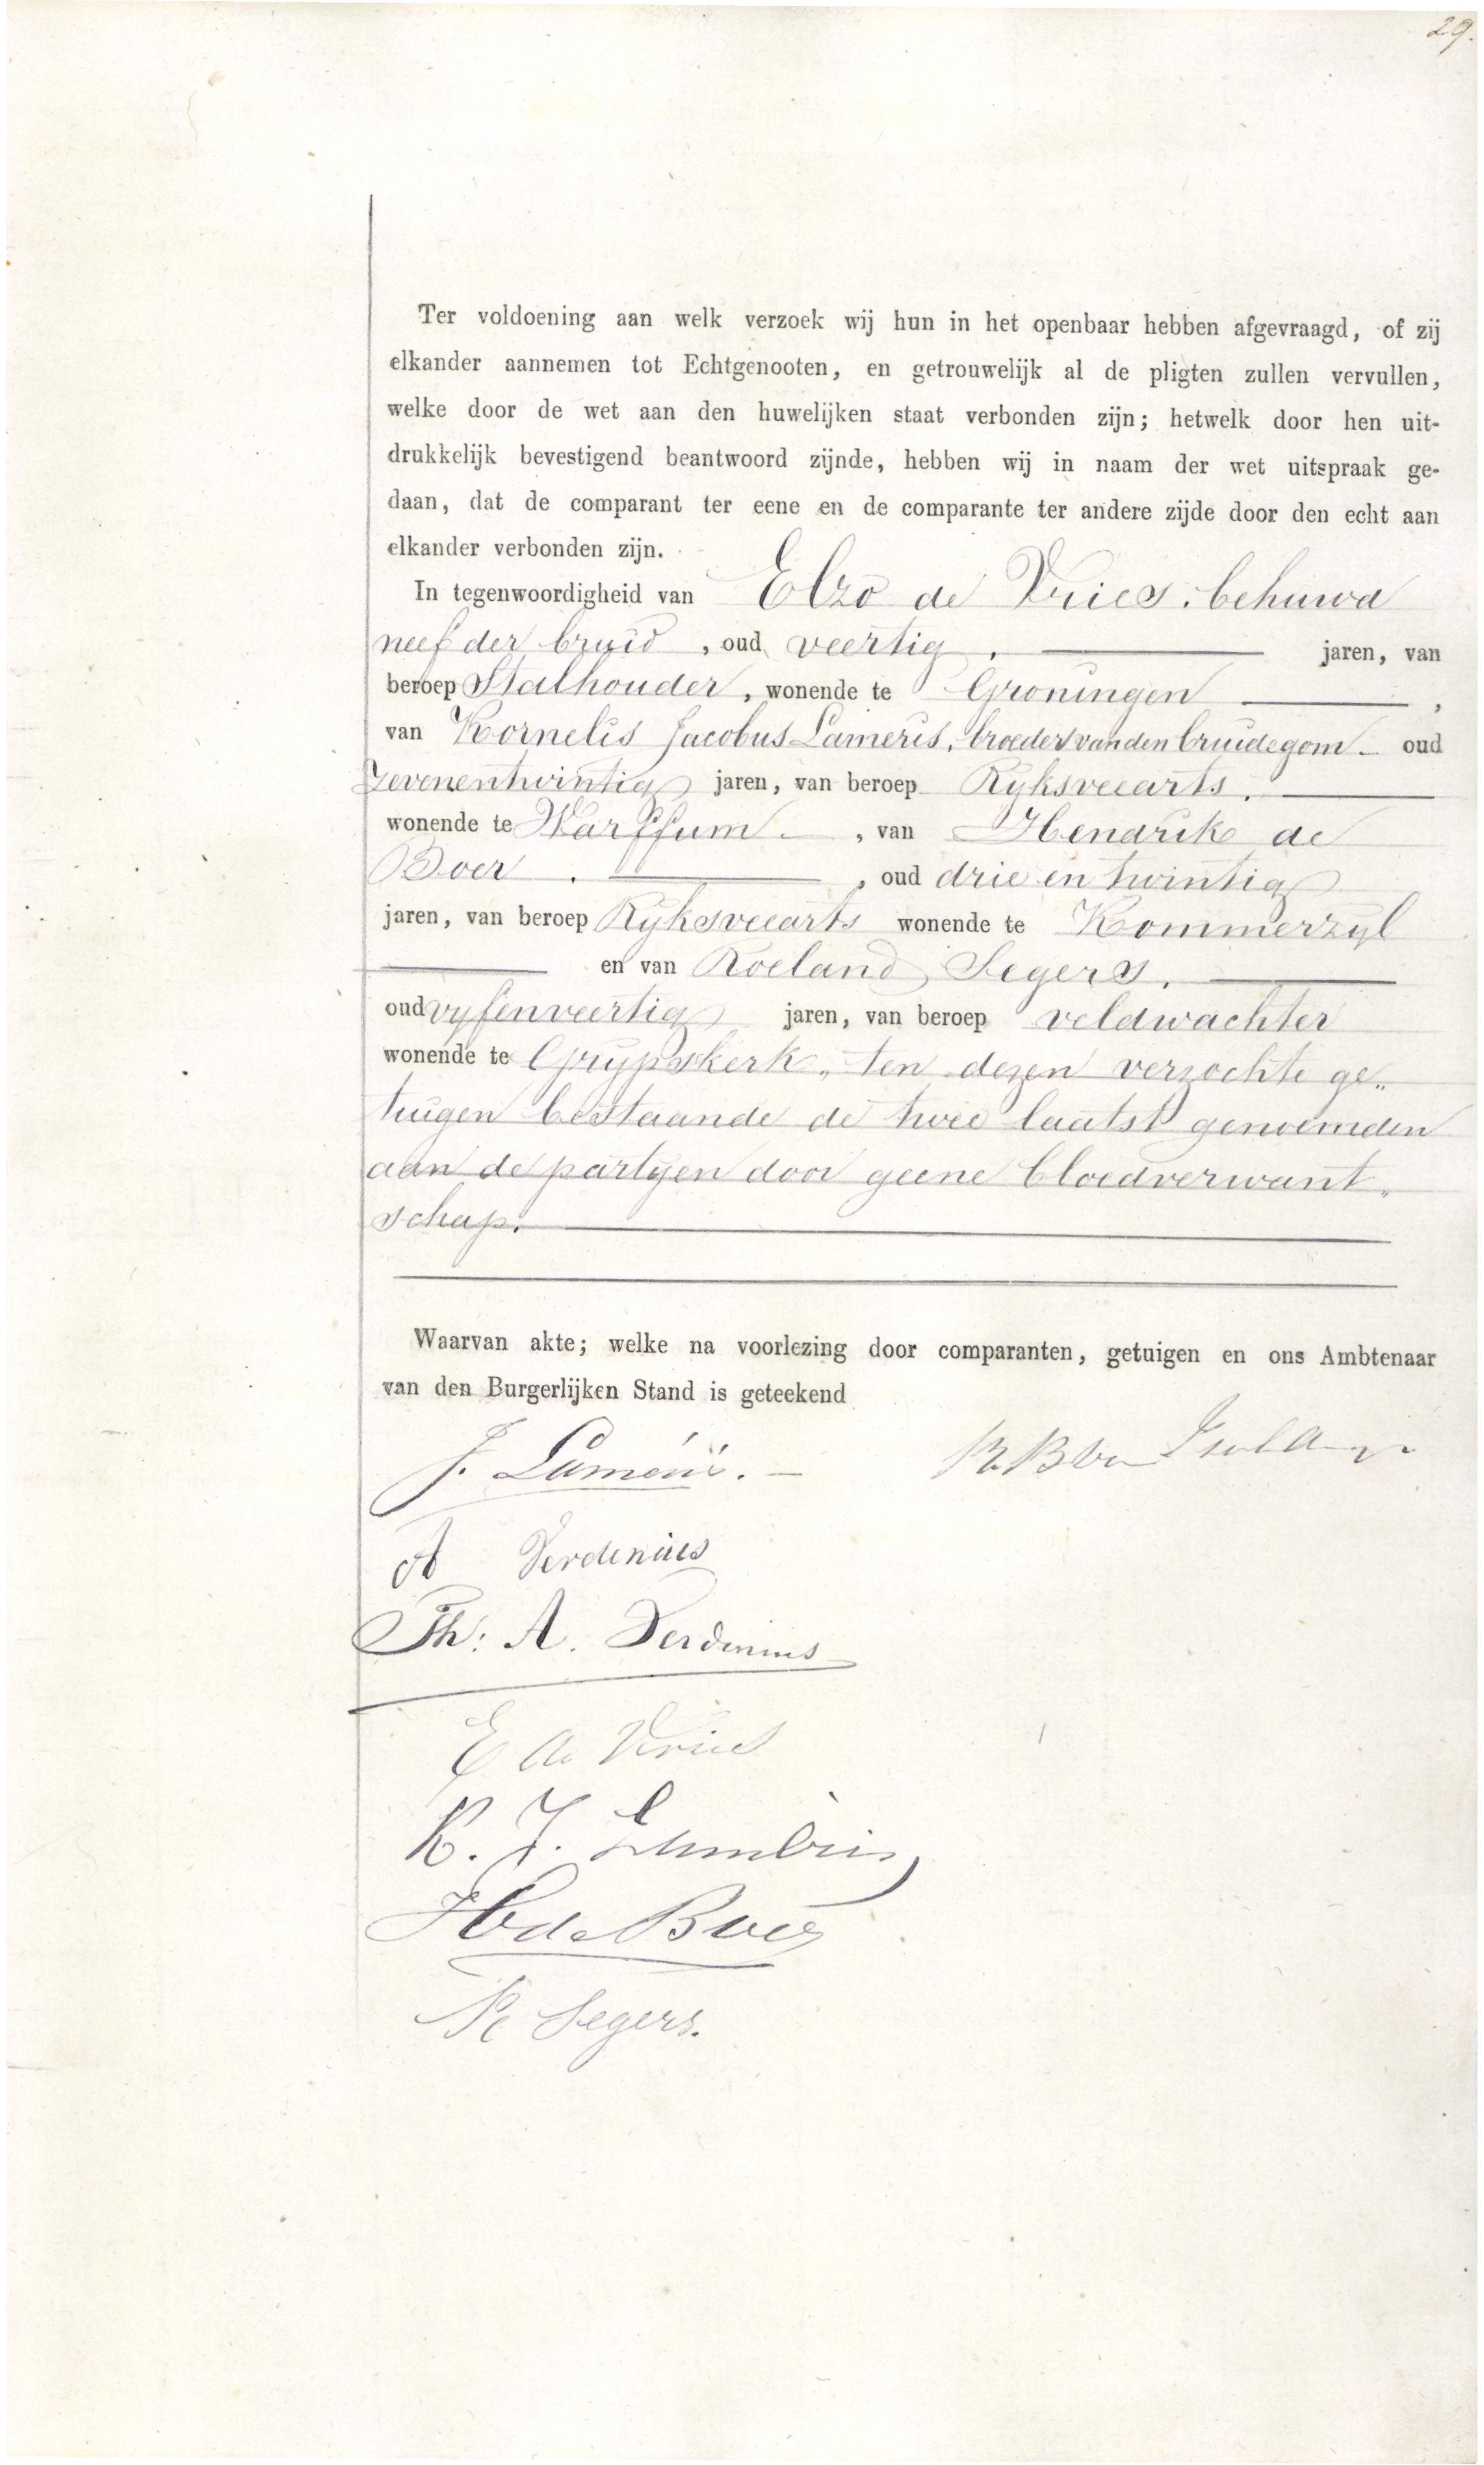 29.
Ter voldoening aan welk verzoek wij hun in het openbaar hebben afgevraagd, of zij
elkander aannemen tot Echtgenooten, en getrouwelijk al de pligten zullen vervullen,
welke door de wet aan den huwelijken staat verbonden zijn; hetwelk door hen uit-
drukkelijk bevestigend beantwoord zijnde, hebben wij in naam der wet uitspraak ge-
daan, dat de comparant ter eene en de comparante ter andere zijde door den echt aan
elkander verbonden zijn.
In tegenwoordigheid van Elzo de Vries, behuwd
neef der bruid, oud veertig, jaren, van
beroep Stalhouder, wonende te Groningen,
van Kornelis Jacobus Lameris, broeder van den bruidegom oud
zevenentwintig jaren, van beroep Ryksveearts,
wonende te Warffum, van Hendrik de
Boer, oud drie en twintig
jaren, van beroep Ryksveearts wonende te Kommerzyl
en van Roeland Segers,
oud vyfenveertig jaren, van beroep veldwachter
wonende te Grypskerk, ten dezen verzochte ge„
tuigen bestaande de twee laatst genoemden
aan de partyen door geene bloedverwant„
schap.
Waarvan akte; welke na voorlezing door comparanten, getuigen en ons Ambtenaar
van den Burgerlijken Stand is geteekend
J. Lameris.
A Verdenius
Th: A. Verdenius
E de Vries
K. J. Lameris
H de Boer
R Segers.